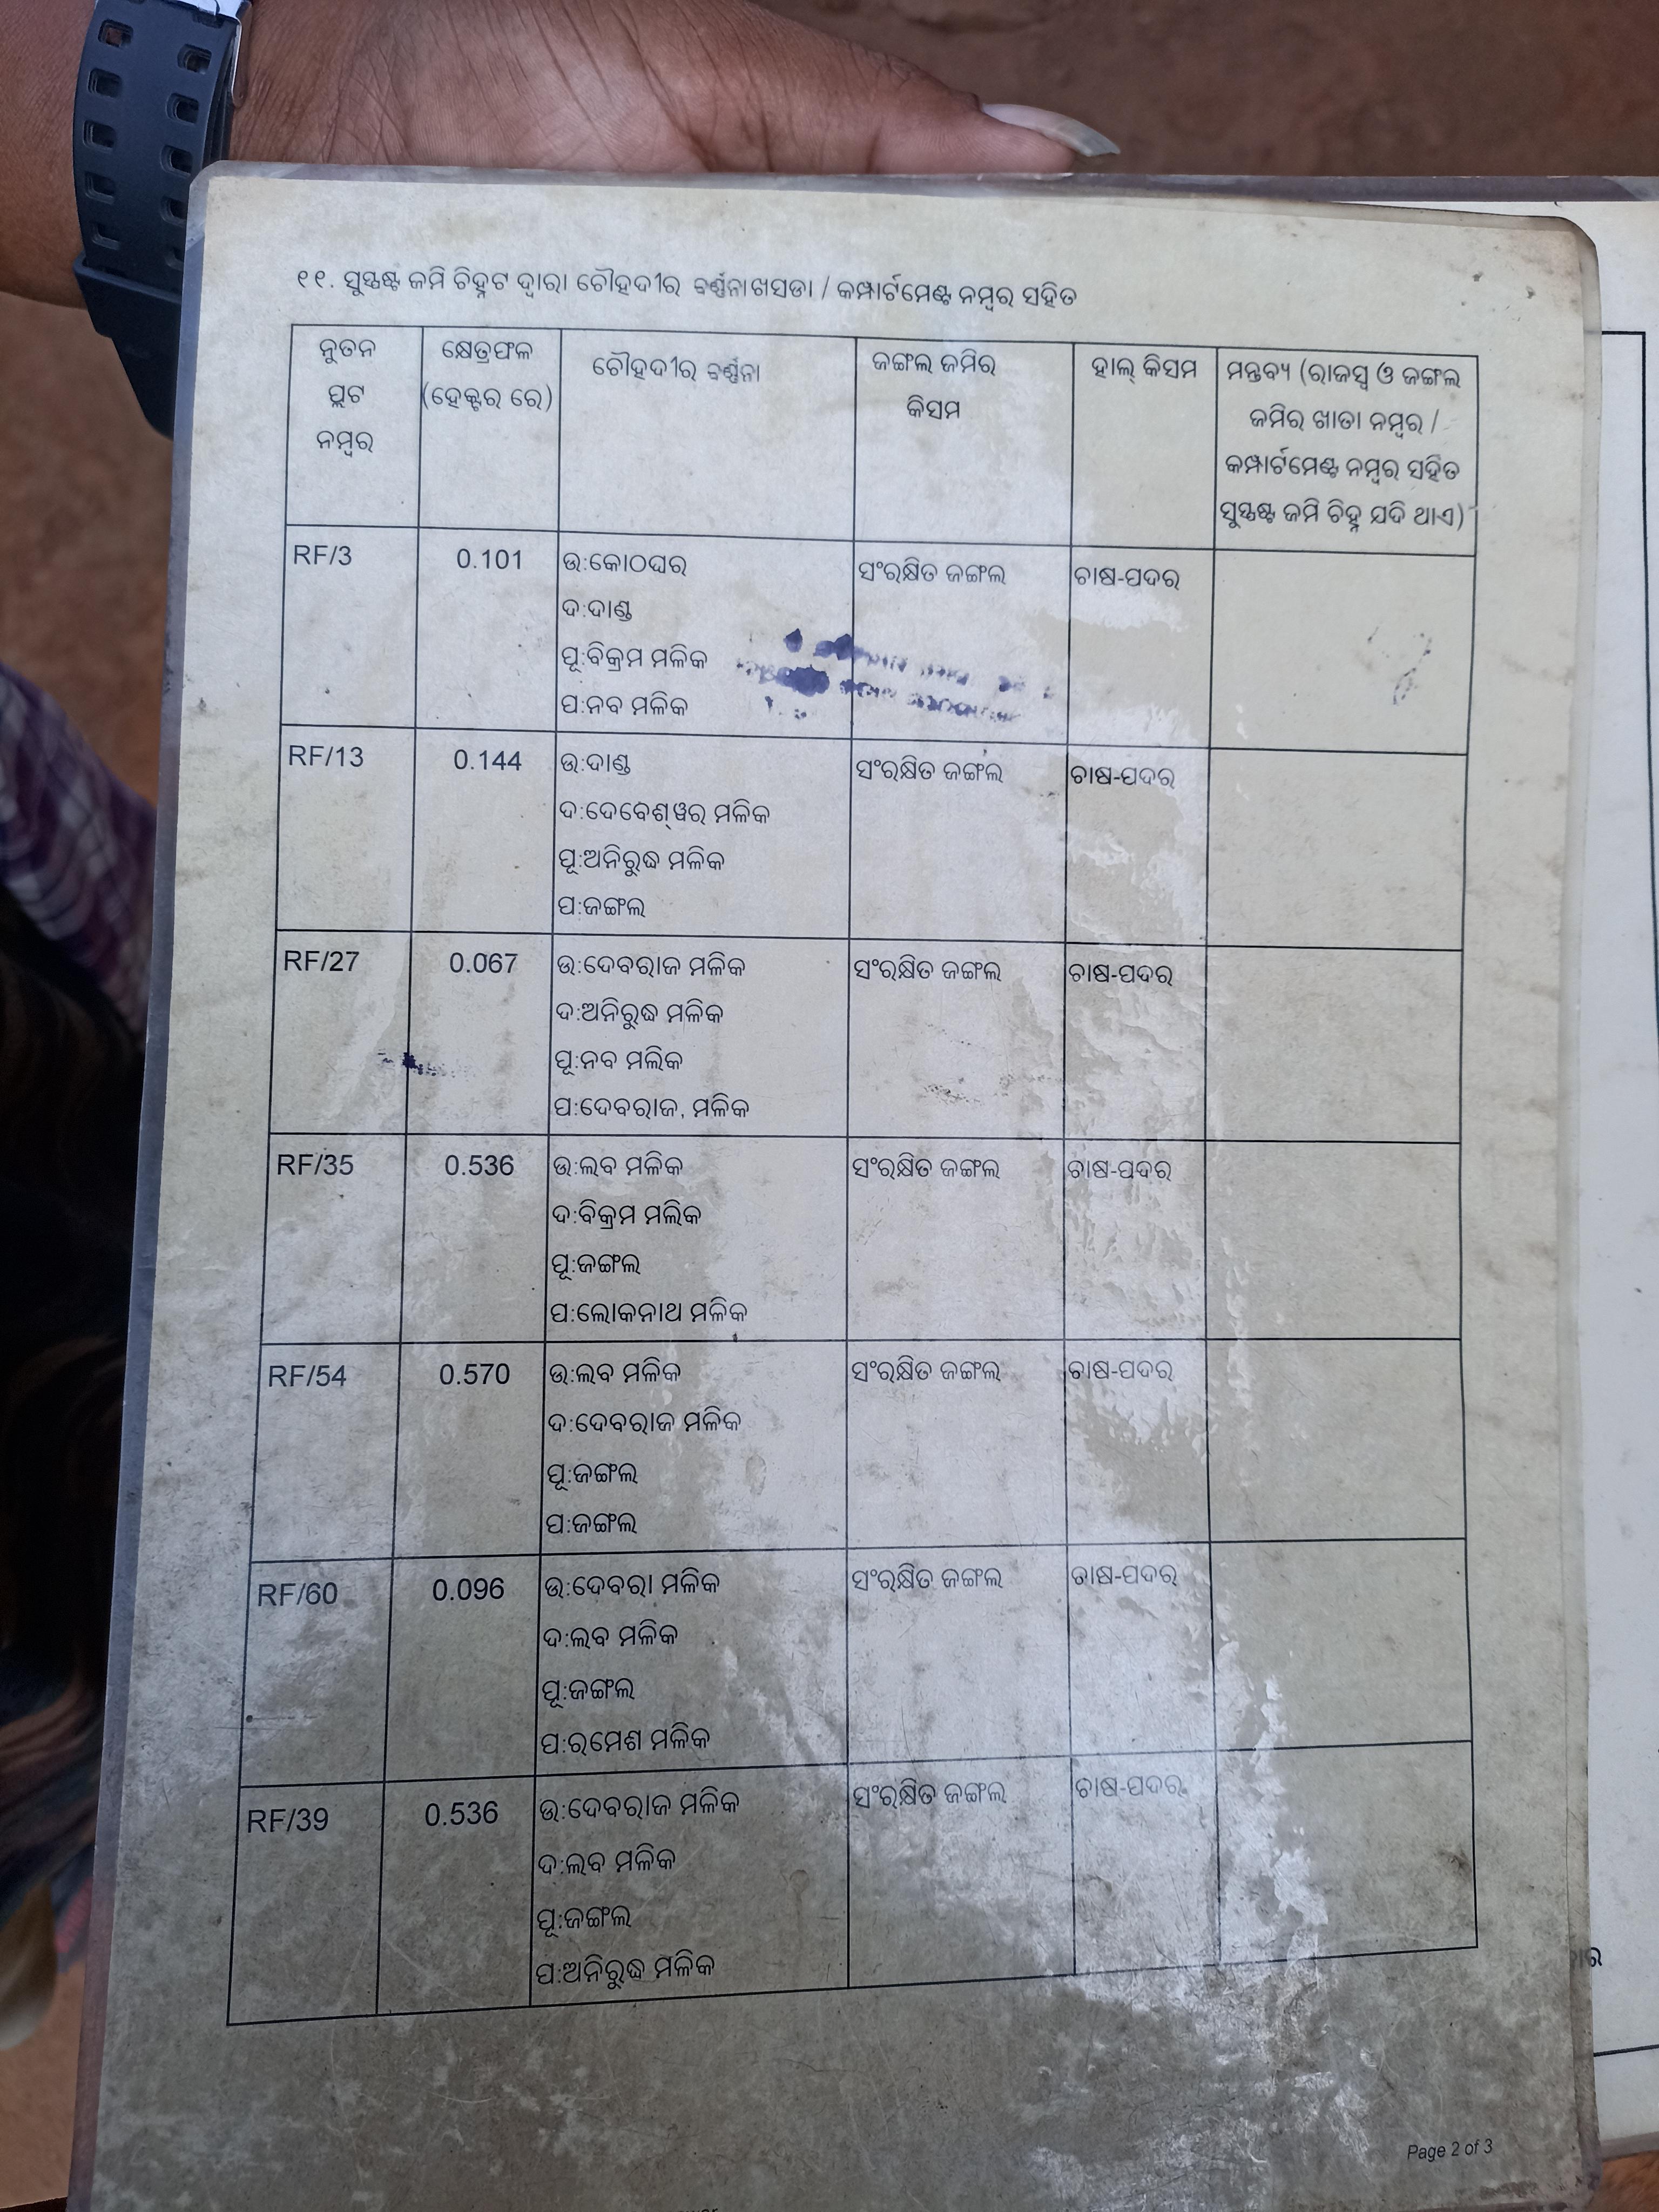 ୧୧. ସୁସ୍ପଷ୍ଟ ଜମି ଚିହ୍ନଟ ଦ୍ବାରା ଚୌହଦୀର ବର୍ଣ୍ଣନା ଖସଡା / କମ୍ପାର୍ଟମେଣ୍ଟ ନମ୍ବର ସହିତ
ନୁତନ ପ୍ଲଟ ନମ୍ବର
କ୍ଷେତ୍ରଫଳ (ହେକ୍ଟର ରେ)
ଚୌହଦୀର ବର୍ଣ୍ଣନା
ଜଙ୍ଗଲ ଜମିର କିସମ
ହାଲ୍ କିସମ
ମନ୍ତବ୍ୟ (ରାଜସ୍ବ ଓ ଜଙ୍ଗଲ
ଜମିର ଖାତା ନମ୍ବର /
କମ୍ପାର୍ଟମେଣ୍ଟ ନମ୍ବର ସହିତ
ସୁସ୍ପଷ୍ଟ ଜମି ଚିହ୍ନ ଯଦି ଥାଏ)
RF/3 0.101 ଉ:କୋଠଘର ସଂରକ୍ଷିତ ଜଙ୍ଗଲ ଚାଷ-ପଦର
ଦ:ଦାଣ୍ଡ
ପୂ:ବିକ୍ରମ ମଳିକ
ପ:ନବ ମଳିକ
RF/13 0.144 ଉ:ଦାଣ୍ଡ ସଂରକ୍ଷିତ ଜଙ୍ଗଲ ଚାଷ-ପଦର
ଦ:ଦେବେଶ୍ୱର ମଳିକ
ପୂ:ଅନିରୁଦ୍ଧ ମଳିକ
ପ:ଜଙ୍ଗଲ
RF/27 0.067 ଉ:ଦେବରାଜ ମଳିକ ସଂରକ୍ଷିତ ଜଙ୍ଗଲ ଚାଷ-ପଦର
ଦ:ଅନିରୁଦ୍ଧ ମଳିକ
ପୂ:ନବ ମଲିକ
ପ:ଦେବରାଜ, ମଳିକ
RF/35 0.536 ଉ:ଲବ ମଳିକ ସଂରକ୍ଷିତ ଜଙ୍ଗଲ ଚାଷ-ପଦର
ଦ:ବିକ୍ରମ ମଲିକ
ପୂ:ଜଙ୍ଗଲ
ପ:ଲୋକନାଥ ମଳିକ
RF/54 0.570 ଉ:ଲବ ମଳିକ ସଂରକ୍ଷିତ ଜଙ୍ଗଲ ଚାଷ-ପଦର
ଦ:ଦେବରାଜ ମଳିକ
ପୂ:ଜଙ୍ଗଲ
ପ:ଜଙ୍ଗଲ
RF/60 0.096 ଉ:ଦେବରା ମଳିକ ସଂରକ୍ଷିତ ଜଙ୍ଗଲ ଚାଷ-ପଦର
ଦ:ଲବ ମଳିକ
ପୂ:ଜଙ୍ଗଲ
ପ:ରମେଶ ମଳିକ
RF/39 0.536 ଉ:ଦେବରାଜ ମଳିକ ସଂରକ୍ଷିତ ଜଙ୍ଗଲ ଚାଷ-ପଦର
ଦ:ଲବ ମଳିକ
ପୂ:ଜଙ୍ଗଲ
ପ:ଅନିରୁଦ୍ଧ ମଳିକ
Page 2 of 3